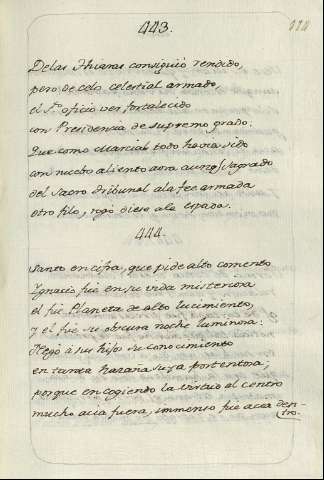 443.
De las Hueras consiguió rendido,
pero de celo celestial armado,
el S.to oficio ver fortalecido
con Presidencia de supremo grado.
Que como Marcial todo havia sido
con nuebo aliento aora aung Sagrado
del Sacro tribunal a la fee armada
otro filo, rogó diese a la espada.
444.
Santo en cifra, que pide alto comento
Ygnacio fue en su vida misteriosa
el fue Planeta de alto lucimiento,
y el fue su obscura noche luminosa.
Negó á sus hijos su conocimiento
en tanta hazaña suya portentosa,
porque encogiendo la virtud al centro
mucho acia fuera, immenso fue acia dentro.